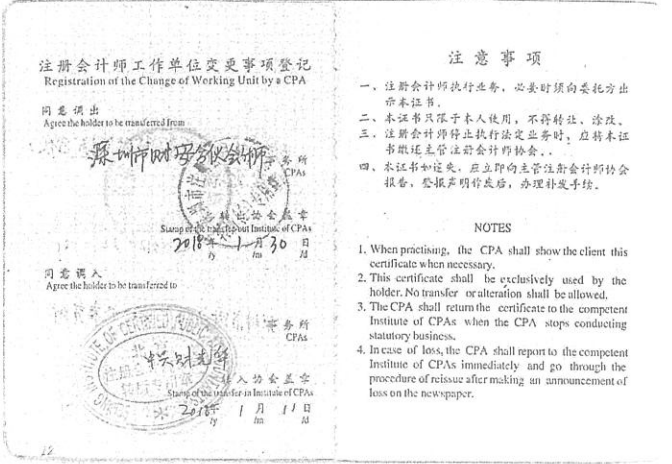 注册会计师工作单位变更事项登记
Registration of the Change of Working Unit by a CPA
同意调出
Agree the holder to be transferred from
深圳市财安合伙会计师事务所
CPAs
转出协会盖章
Stamp of the transfer-out Institute of CPAs
2018年 1月 30日
/y /m /d
同意调入
Agree the holder to be transferred to
事务所
CPAs
转入协会盖章
Stamp of the transfer-in Institute of CPAs
月 日
/y /m /d
12
注意事项
一、注册会计师执行业务，必要时须向委托方出
示本证书。
二、本证书只限于本人使用，不得转让、涂改。
三、注册会计师停止执行法定业务时，应将本证
书缴还主管注册会计师协会。
四、本证书如遗失，应立即向主管注册会计师协会
报告，登报声明作废后，办理补发手续。
NOTES
1. When practising, the CPA shall show the client this
certificate when necessary.
2. This certificate shall be exclusively used by the
holder. No transfer or alteration shall be allowed.
3. The CPA shall return the certificate to the competent
Institute of CPAs when the CPA stops conducting
statutory business.
4. In case of loss, the CPA shall report to the competent
Institute of CPAs immediately and go through the
procedure of reissue after making an announcement of
loss on the newspaper.